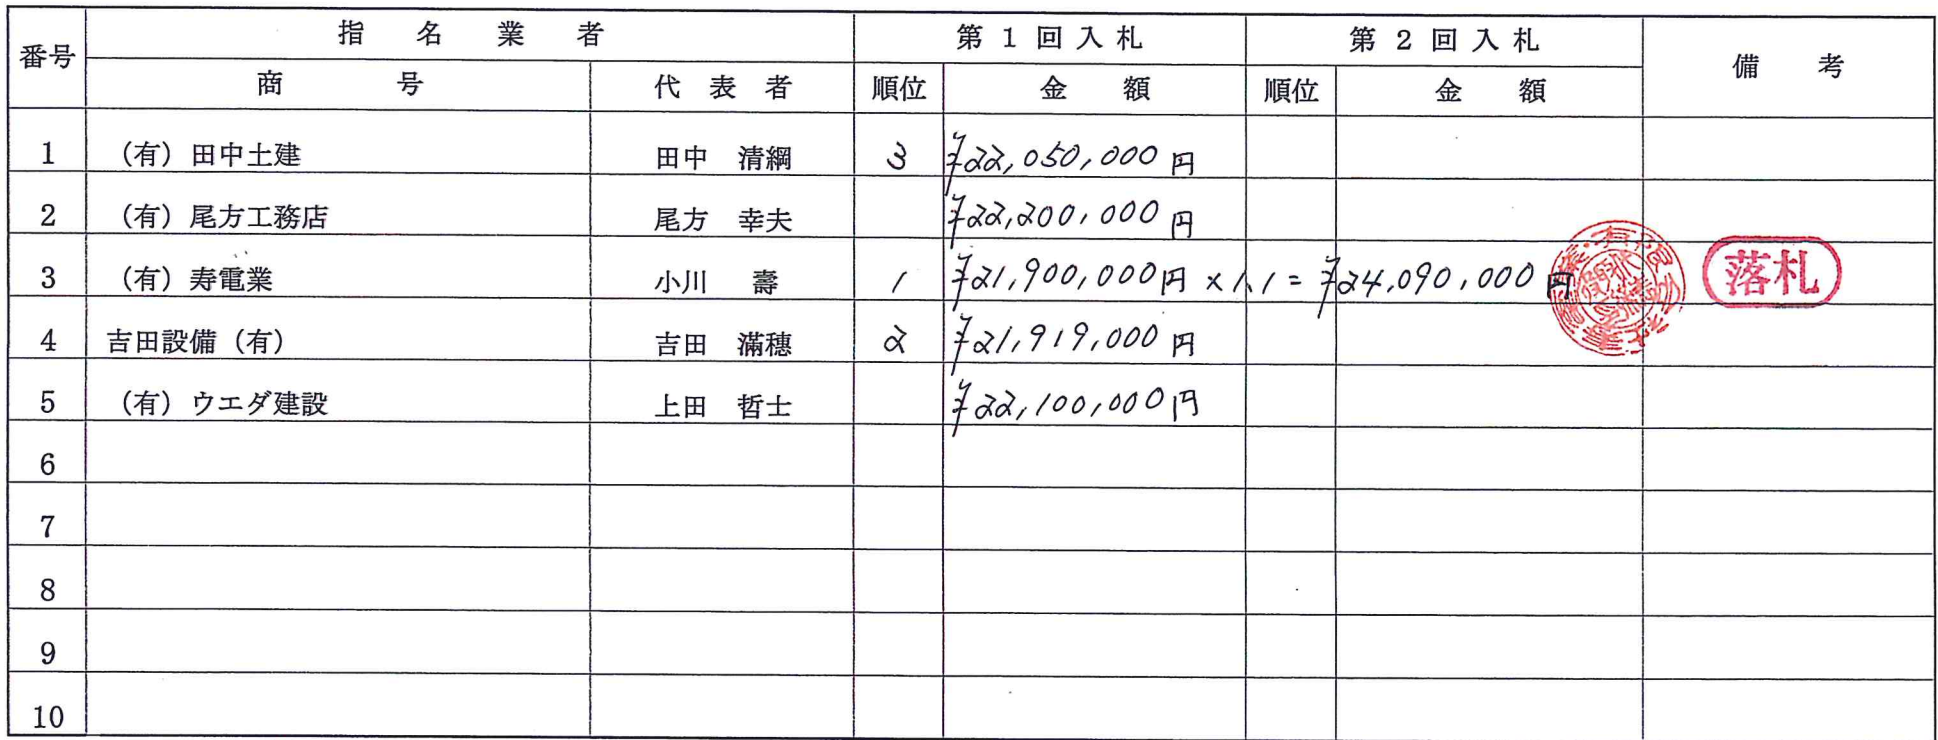 番号 指名業者 第1回入札 第2回入札 備考
商号 代表者 順位 金額 順位 金額
1 (有)田中土建 田中 清綱 3 ¥22,050,000円
2 (有)尾方工務店 尾方 幸夫 ¥22,200,000円
3 (有)寿電業 小川 壽 1 ¥21,900,000円×1.1=¥24,090,000円 落札
4 吉田設備(有) 吉田 滿穂 2 ¥21,919,000円
5 (有)ウエダ建設 上田 哲士 ¥22,100,000円
6
7
8
9
10